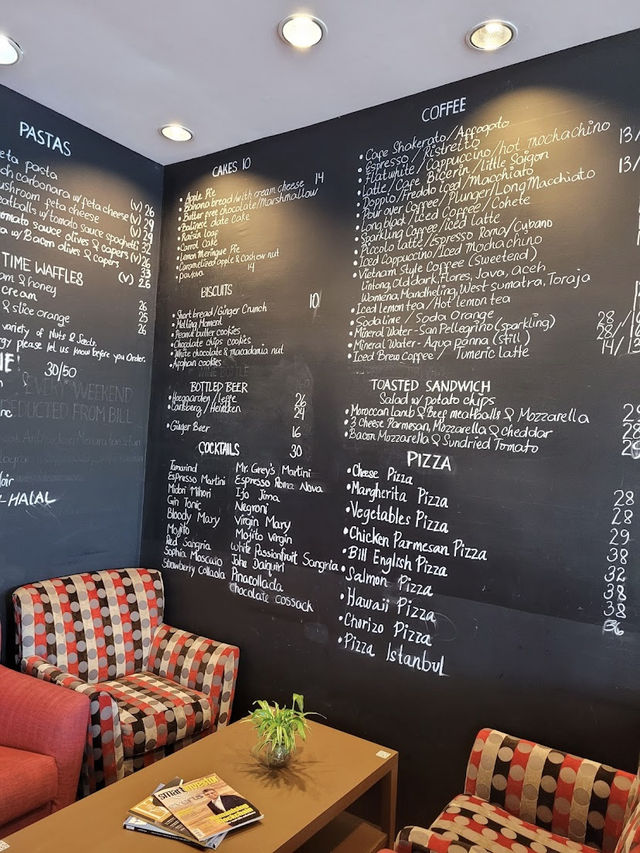 PASTAS
feta pasta
carbonara w/feta cheese (V) 26
mushroom feta cheese (V) 29
meatballs w/tomato sauce spaghetti
tomato sauce olives & capers (V) 26
w/Bacon olives & capers 33
(V) 26
TIME WAFFLES
& honey 26
cream 25
& slice orange 26
variety of Nuts & Seeds.
please let us know before you Order.
30/50
EVERY WEEKEND
DEDUCTED FROM BILL
HALAL
CAKES 10
• Apple Pie
• Banana bread/with cream cheese 14
• Butter free chocolate/Marshmallow
• Balinese date Cake
• Raisin loaf
• Carrot Cake
• Lemon Meringue Pie
• Caramelized apple & cashew nut
• pavlova 14
BISCUITS 10
• Shortbread/Ginger Crunch
• Melting Moment
• Peanut butter cookies
• Chocolate chips cookies
• White chocolate & macadamia nut
• Afghan cookies
BOTTLED BEER
• Hoegaarden/Leffe 26
• Carlsberg/Heineken 24
• Ginger Beer 16
COCKTAILS 30
Tamarind
Espresso Martini
Midori Mihori
Gin Tonic
Bloody Mary
Mojito
Red Sangria
Sophia Moscato
Strawberry collada
Mr. Grey's Martini
Espresso Roma Nova
Ijo Jima
Negroni
Virgin Mary
Mojito Virgin
White Passionfruit Sangria
John Daiquiri
Pinacollada
Chocolate cossack
COFFEE
• Cafe Shakerato/Affogato
• Espresso/Ristretto
• Flatwhite/Cappuccino/hot mochachino 13/
• Latte/Cafe Bicerin/Little Saigon
• Doppio/Freddo Iced/Macchiato 13/
• Pour over Coffee/Plunger/Long Macchiato
• Long black/Iced Coffee/Cohete
• Sparkling Coffee/Iced latte
• Piccolo latte/Espresso Roma/Cubano
• Iced Cappuccino/Iced Mochachino
• Vietnam Style Coffee (Sweetend)
Lintong, Old dark, Flores, Java, aceh
Wamena, Mandheling, West sumatra, Toraja
• Iced lemon tea/Hot lemon tea
• Sodalime/Soda Orange
• Mineral Water - San Pellegrino (sparkling) 28/
• Mineral Water - Aqua panna (still) 28/
• Iced Brew Coffee/Tumeric latte 14/
TOASTED SANDWICH
Salad w/potato chips
• Moroccan Lamb & Beef meatballs & Mozzarella
• 3 Cheese Parmesan, Mozzarella & cheddar
• Bacon Mozzarella & Sundried Tomato
PIZZA
• Cheese Pizza
• Margherita Pizza 28
• Vegetables Pizza 28
• Chicken Parmesan Pizza 29
• Bill English Pizza 38
• Salmon Pizza 32
• Hawaii Pizza 38
• Chorizo Pizza 38
• Pizza Istanbul
smart investor